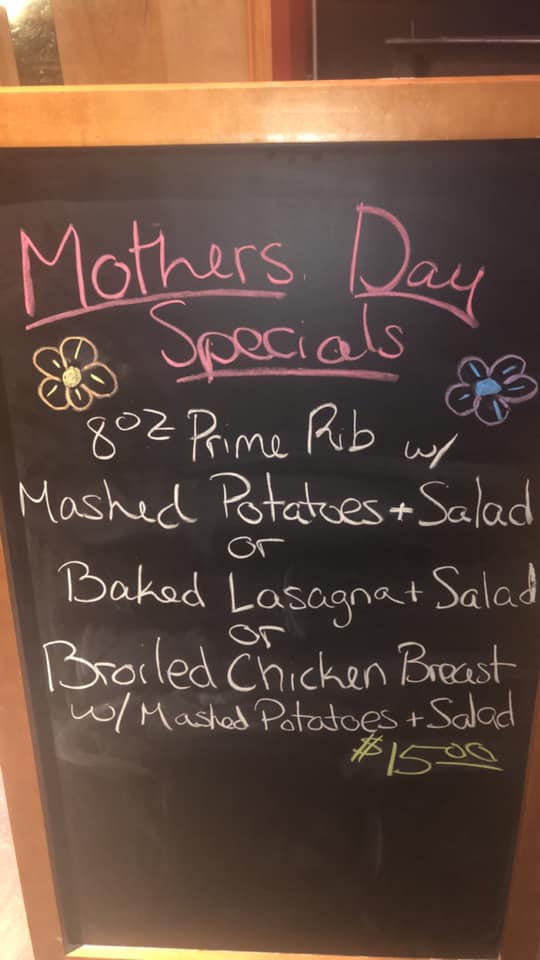 Mothers Day
Specials
8oz Prime Rib w/
Mashed Potatoes + Salad
or
Baked Lasagna + Salad
or
Broiled Chicken Breast
w/ Mashed Potatoes + Salad
$15.00